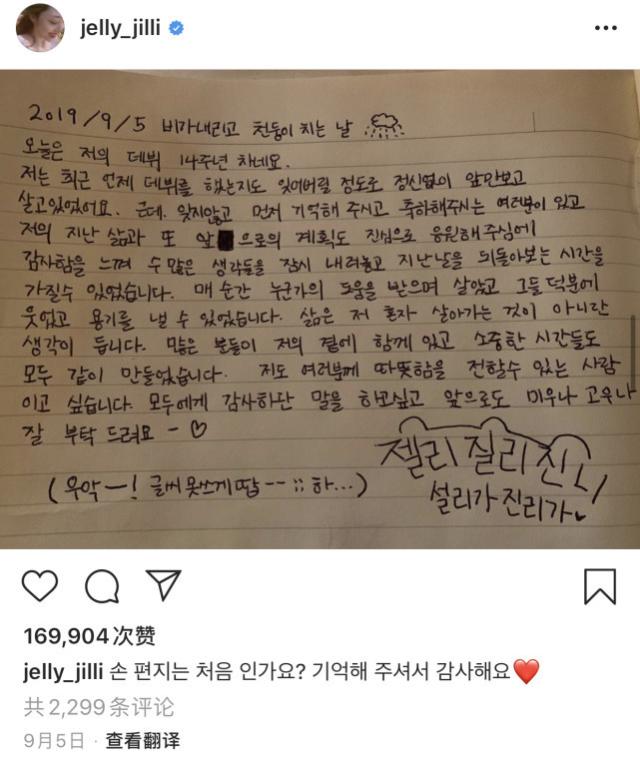 jelly_jilli
2019/9/5 비가내리고 천둥이 치는 날
오늘은 저의 데뷔 14주년 차네요.
저는 최근 언제 데뷔를 했는지도 잊어버릴 정도로 정신없이 앞만보고
살고있었어요. 근데. 잊지않고 먼저 기억해 주시고 축하해주시는 여러분이 있고
저의 지난 삶과 또 앞으로의 계획도 진심으로 응원해 주심에
감사함을 느껴 수 많은 생각들을 잠시 내려놓고 지난날을 뒤돌아보는 시간을
가질수 있었습니다. 매 순간 누군가의 도움을 받으며 살았고 그들 덕분에
웃었고 용기를 낼 수 있었습니다. 삶은 저 혼자 살아가는 것이 아니란
생각이 듭니다. 많은 분들이 저의 곁에 함께 있고 소중한 시간들도
모두 같이 만들었습니다. 저도 여러분께 따뜻함을 전할수 있는 사람
이고 싶습니다. 모두에게 감사하단 말을 하고싶고 앞으로도 미우나 고우나
잘 부탁 드려요 ~ ♡
젤리 질리 진!
(우악ー! 글씨 못쓰게땁-- ;; 하...)
설리가 진리가
169,904次赞
jelly_jilli 손 편지는 처음 인가요? 기억해 주셔서 감사해요❤️
共2,299条评论
9月5日 · 查看翻译